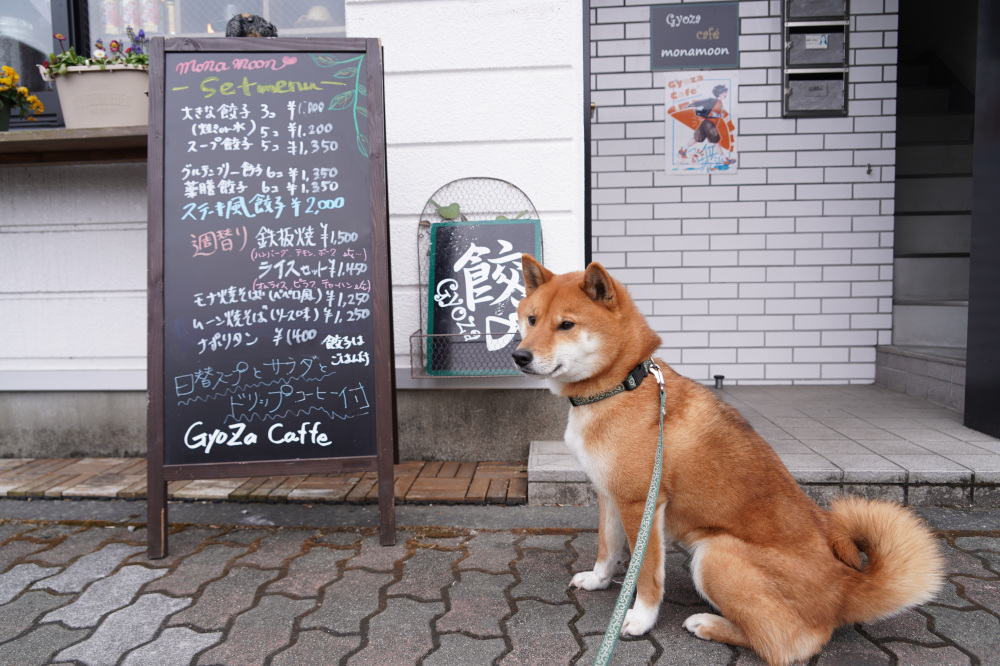 mona moon
Setmenu
大きな餃子 3コ ¥1,000
(焼きor水) 5コ ¥1,200
スープ餃子 5コ ¥1,350
グルテンフリー餃子 6コ ¥1,350
薬膳餃子 6コ ¥1,350
ステーキ風餃子 ¥2,000
週替り 鉄板焼 ¥1,500
(ハンバーグ、チキン、ポーク etc〜)
ライスセット ¥1,450
(オムライス、ピラフ、チャーハン etc)
モナ焼そば(ペペロ風) ¥1,250
ムーン焼そば(ソース味) ¥1,250
ナポリタン ¥1400
餃子は
日替スープとサラダと
ドリップコーヒー付
GyoZa Caffe
餃
Gyoza
Gyoza
café
monamoon
Gyoza
Cafe